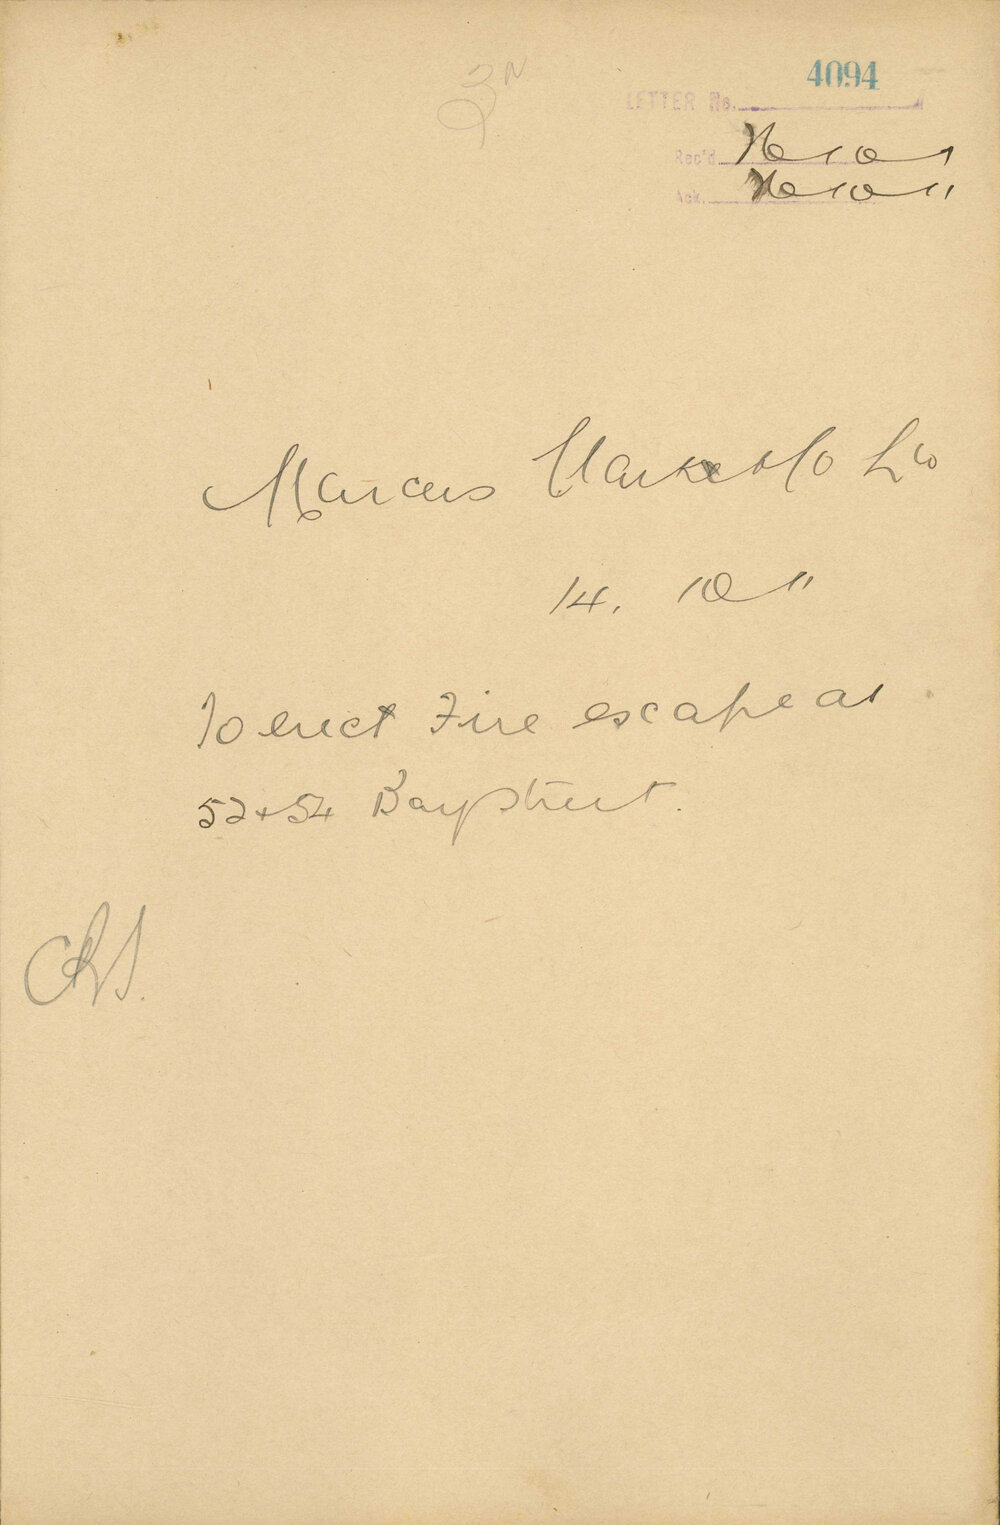 4094
LETTER No.
Rec'd 16 10 11
Ack. 16 10 11
Marcus Clarke & Co Ld
14. 10 11
To erect Fire escape at
52 + 54 Bay Street.